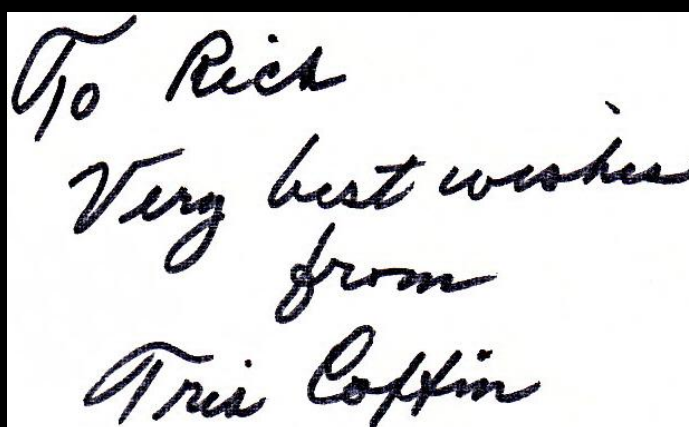 To Rich
Very best wishes
from
Tris Coffin